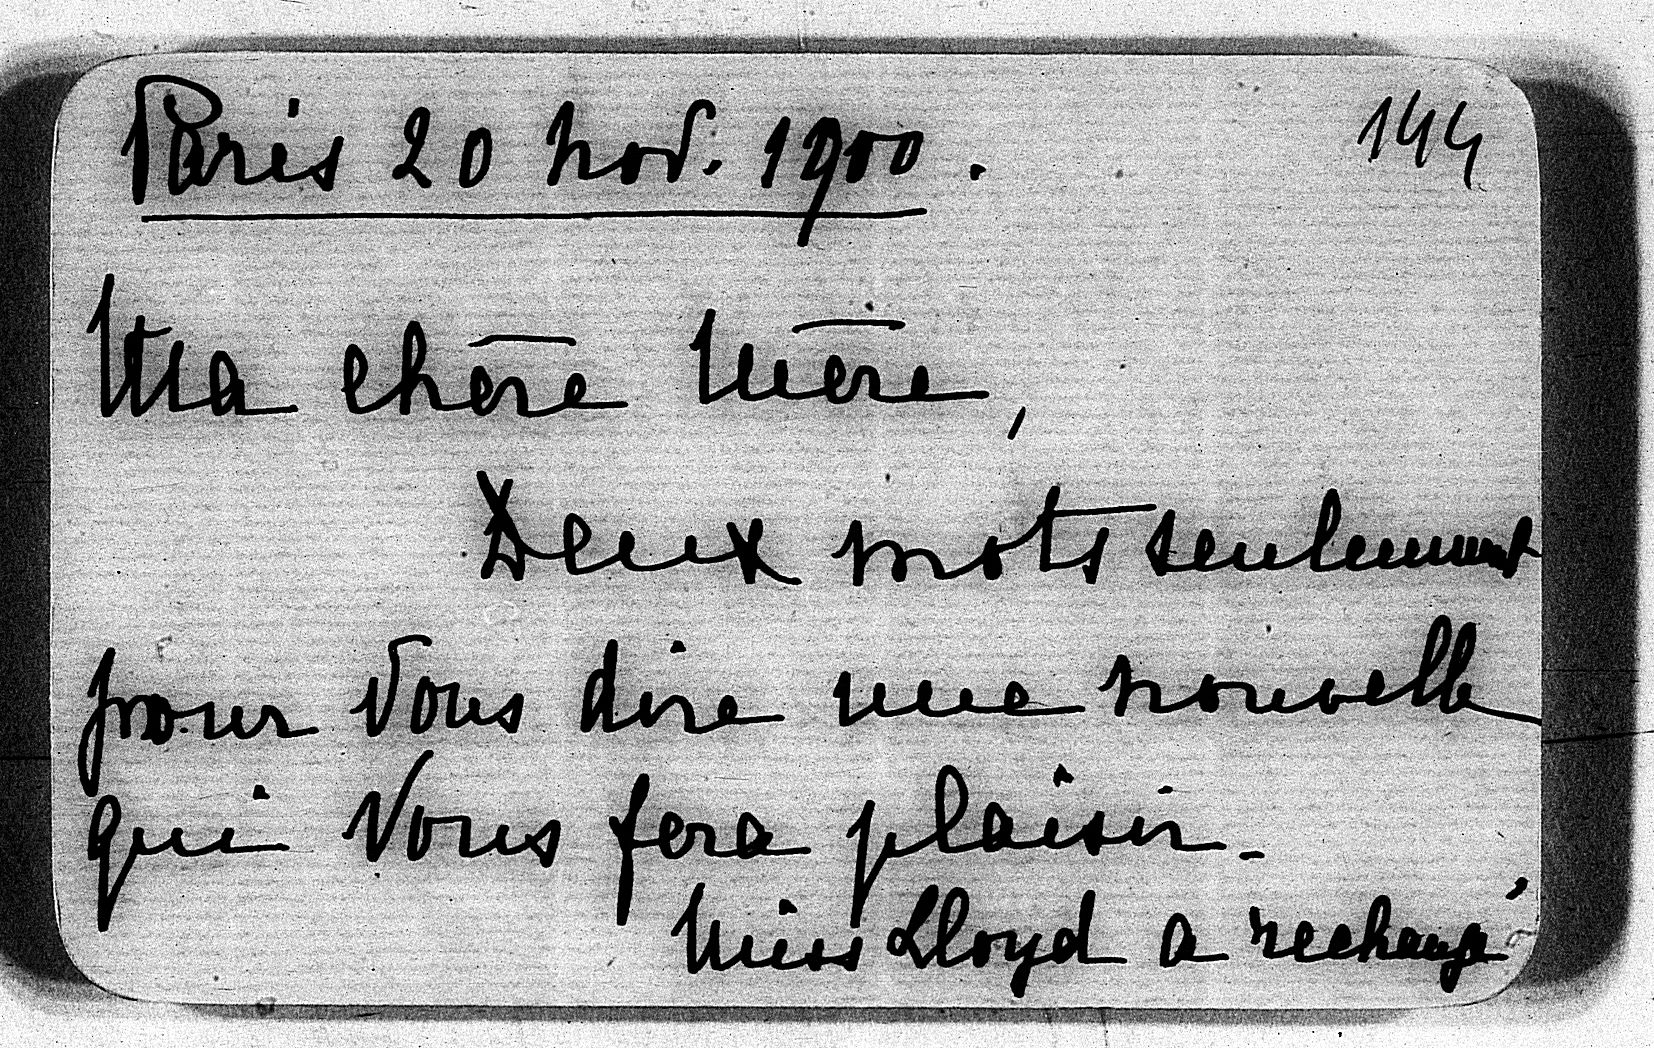 Paris 20 nov. 1900. 144
Ma chère Mère,
Deux mots seulement
pour Vous dire une nouvelle
qui Vous fera plaisir_
Miss Lloyd a rechangé